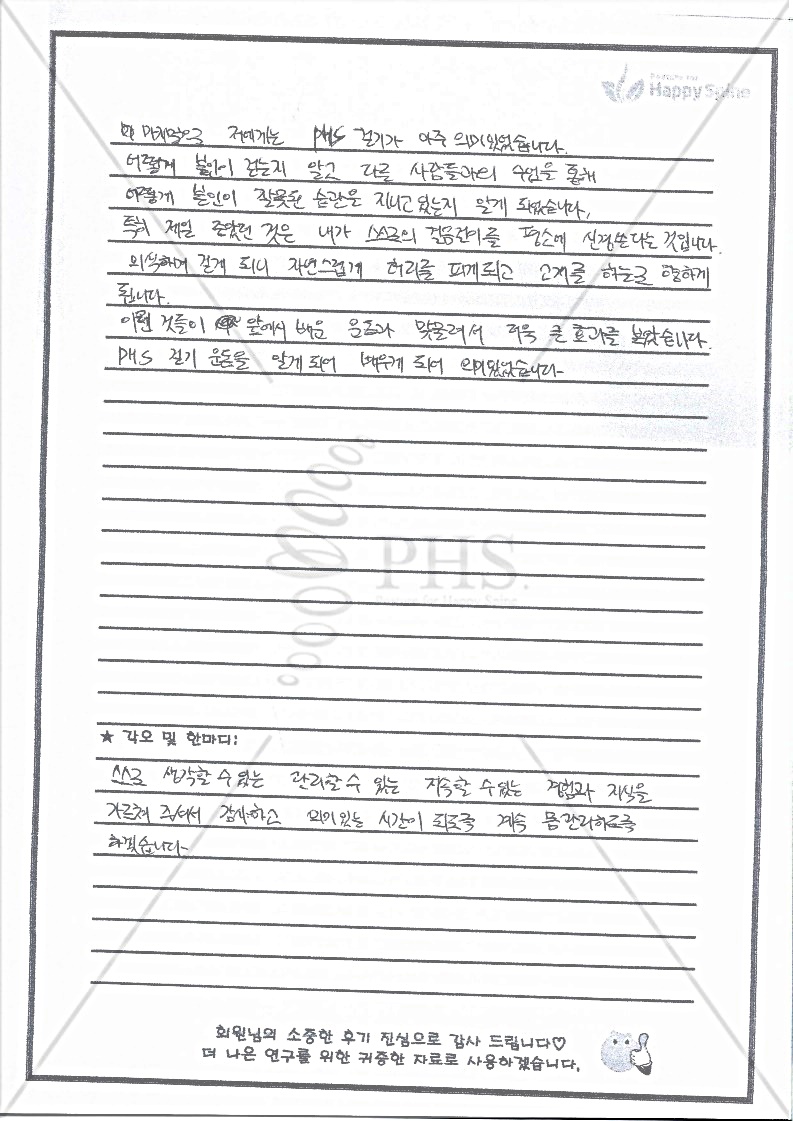 Posture for
Happy Spine
마지막으로 저에게는 PHS 걷기가 아주 의미있었습니다.
어떻게 본인이 걷는지 알고 다른 사람들과의 수업을 통해
어떻게 본인이 잘못된 습관을 지니고 있는지 알게 되었습니다.
특히 제일 좋았던 것은 내가 스스로의 걸음걸이를 평소에 신경쓴다는 것입니다.
의식하며 걷게 되니 자연스럽게 허리를 펴게되고 고개를 하늘로 향하게
됩니다.
이런 것들이 앞에서 배운 운동과 맞물려서 더욱 큰 효과를 보았습니다.
PHS 걷기 운동을 알게되어 배우게 되어 의미있었습니다-
PHS.
Posture for Happy Spine
★ 각오 및 한마디:
스스로 생각할 수 있는 관리할 수 있는 지속할 수 있는 경험과 지식을
가르쳐 주셔서 감사하고 의미있는 시간이 되도록 계속 몸관리하도록
하겠습니다-
회원님의 소중한 후기 진심으로 감사 드립니다♡
더 나은 연구를 위한 귀중한 자료로 사용하겠습니다.